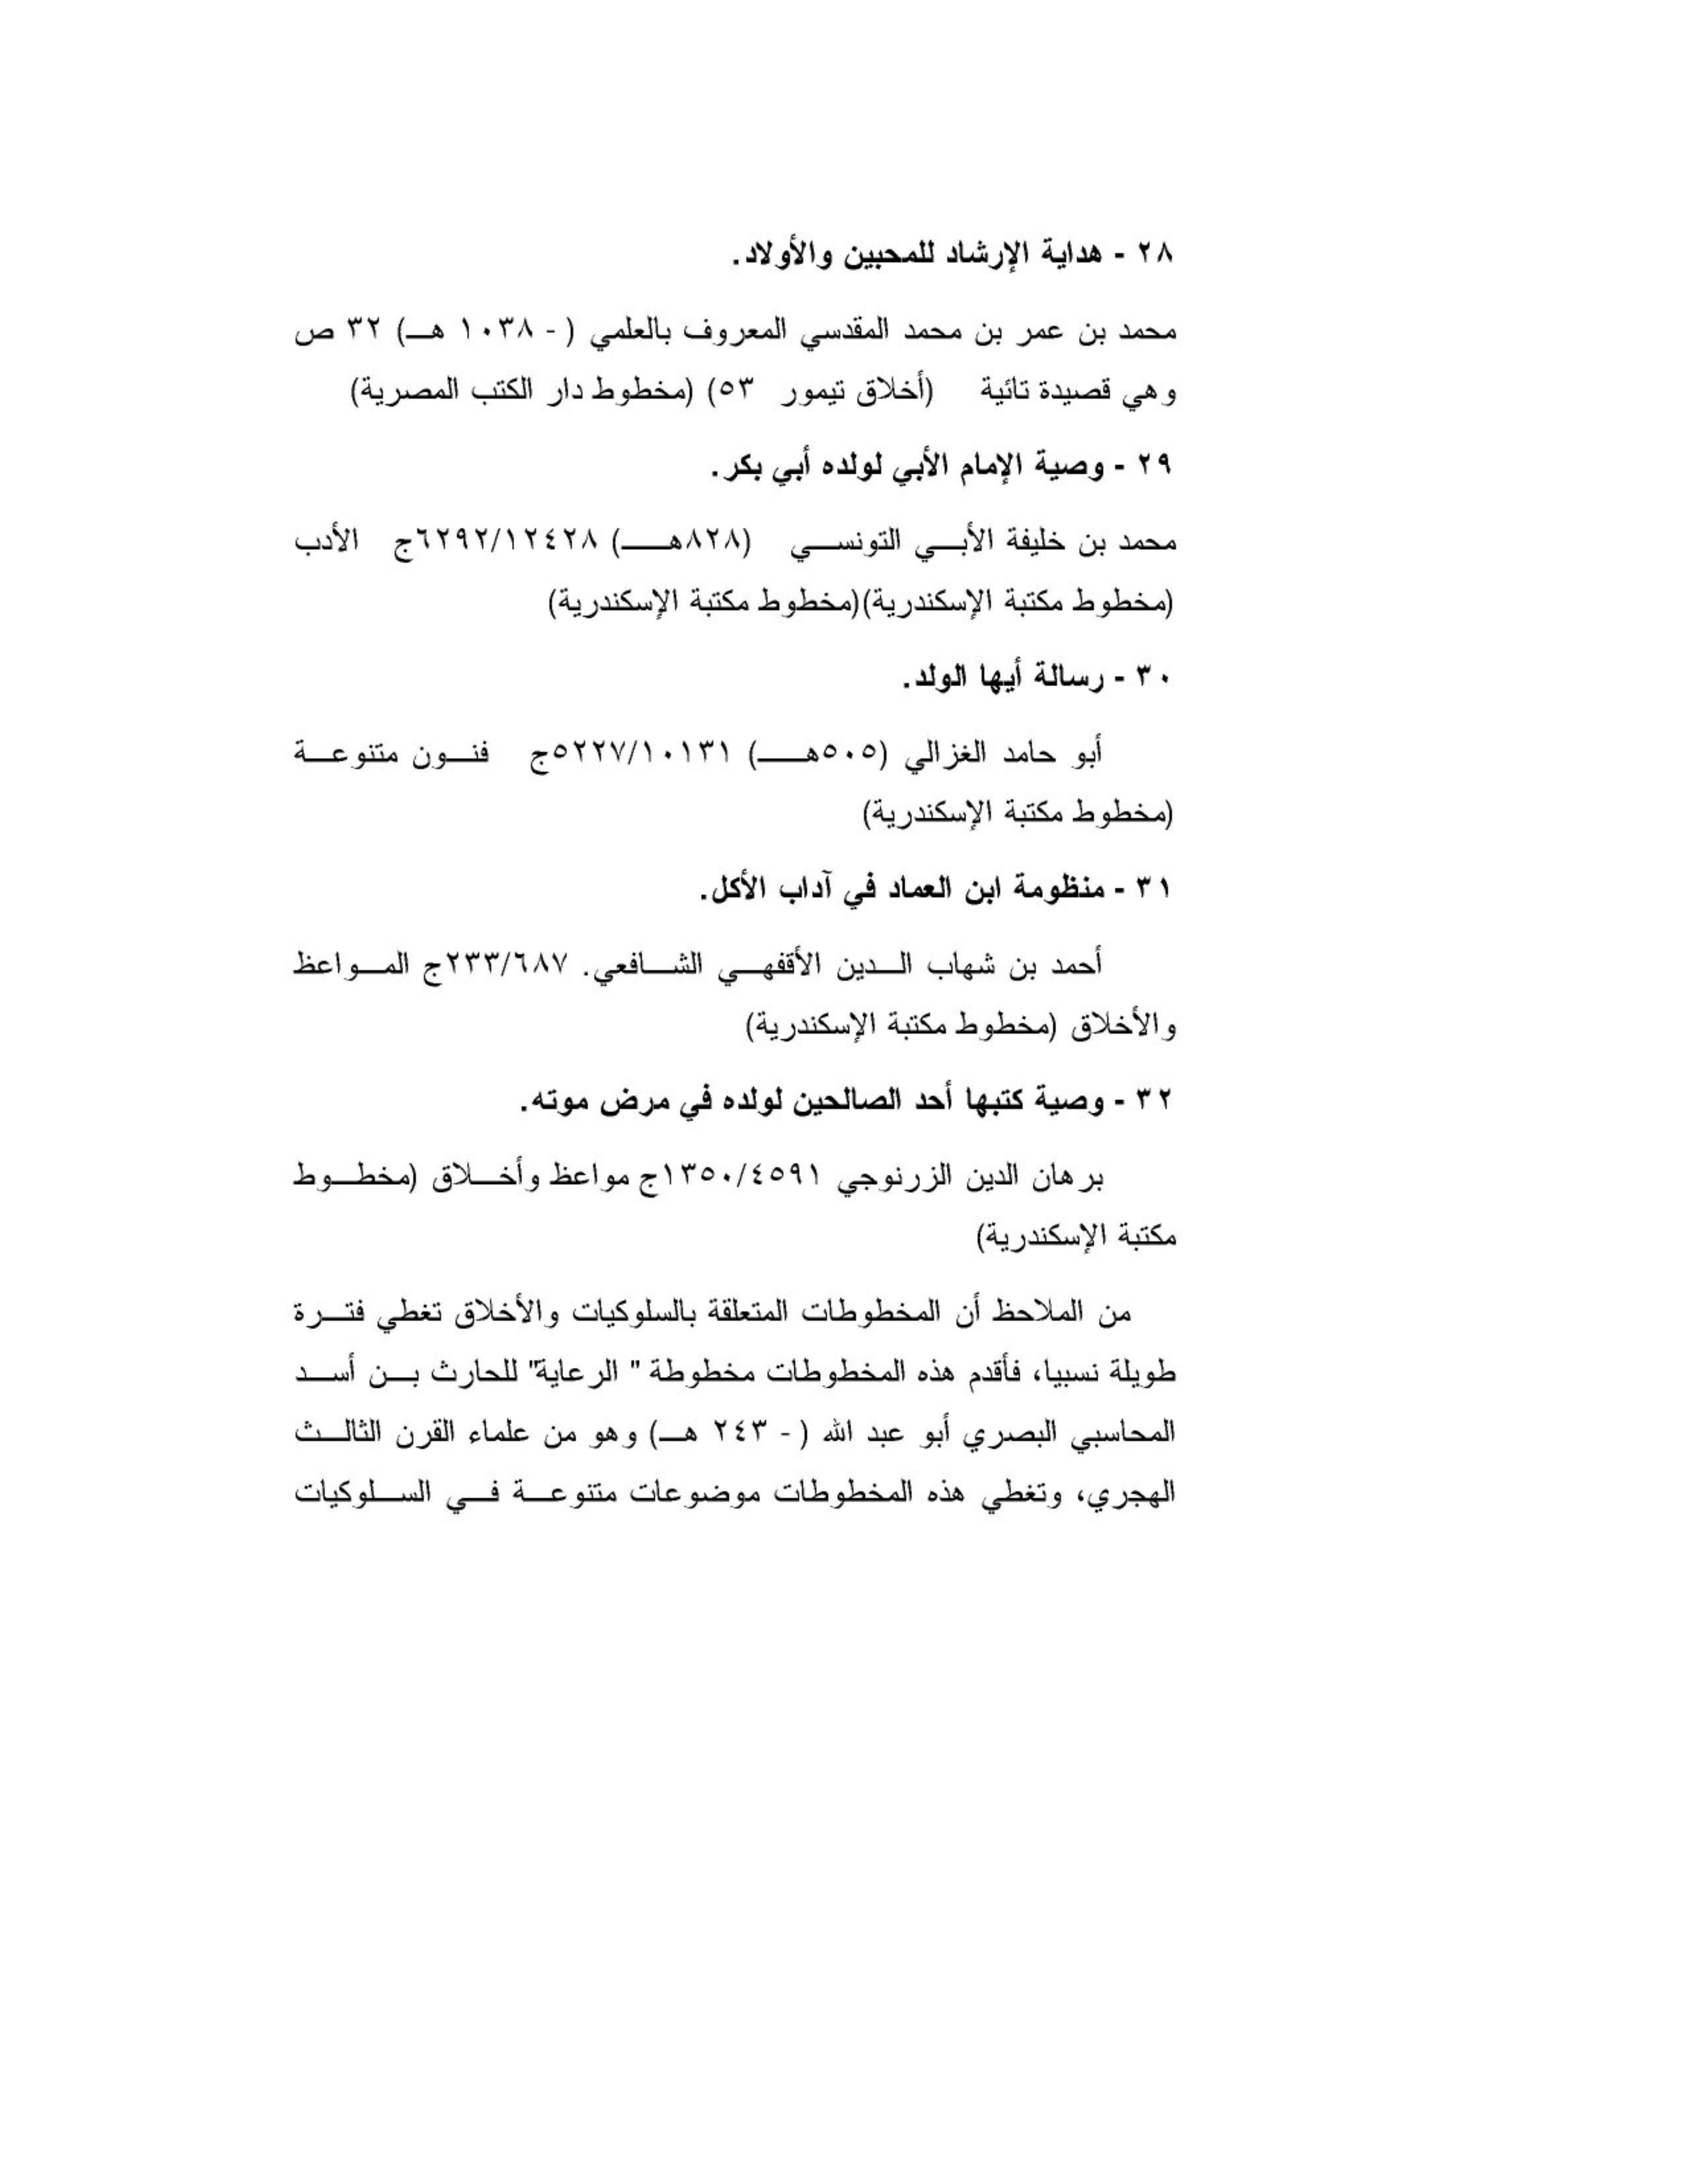 ٢٨ - هداية الإرشاد للمحبين والأولاد.
محمد بن عمر بن محمد المقدسي المعروف بالعلمي ( - ١٠٣٨ هـ) ٣٢ ص
وهي قصيدة تائية (أخلاق تيمور ٥٣) (مخطوط دار الكتب المصرية)
٢٩ - وصية الإمام الأبي لولده أبي بكر.
محمد بن خليفة الأبي التونسي (٨٢٨هـ) ٦٢٩٢/١٢٤٢٨ج الأدب
(مخطوط مكتبة الإسكندرية)(مخطوط مكتبة الإسكندرية)
٣٠ - رسالة أيها الولد.
أبو حامد الغزالي (٥٠٥هـ) ٥٢٢٧/١٠١٣١ج فنون متنوعة
(مخطوط مكتبة الإسكندرية)
٣١ - منظومة ابن العماد في آداب الأكل.
أحمد بن شهاب الدين الأقفهي الشافعي. ٢٣٣/٦٨٧ج المواعظ
والأخلاق (مخطوط مكتبة الإسكندرية)
٣٢ - وصية كتبها أحد الصالحين لولده في مرض موته.
برهان الدين الزرنوجي ١٣٥٠/٤٥٩١ج مواعظ وأخلاق (مخطوط
مكتبة الإسكندرية)
من الملاحظ أن المخطوطات المتعلقة بالسلوكيات والأخلاق تغطي فترة
طويلة نسبيا، فأقدم هذه المخطوطات مخطوطة " الرعاية" للحارث بن أسد
المحاسبي البصري أبو عبد الله ( - ٢٤٣ هـ) وهو من علماء القرن الثالث
الهجري، وتغطي هذه المخطوطات موضوعات متنوعة في السلوكيات